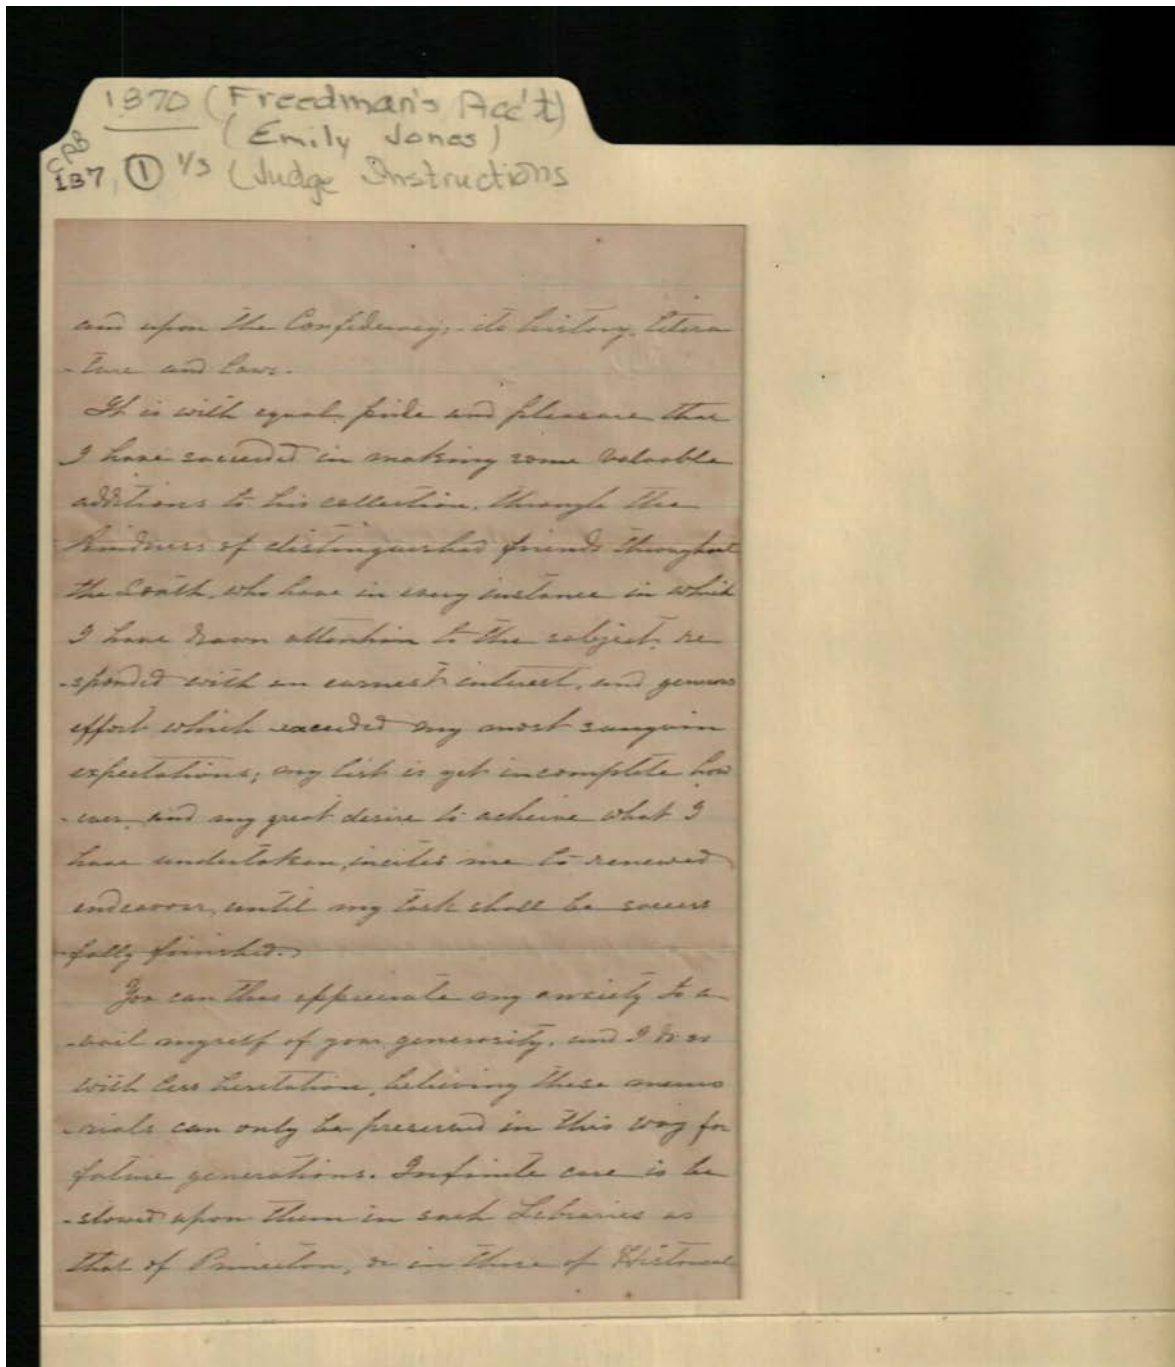 1870 (Freedman's Acc't)
(Emily Jones)
CPB
137, ① 1/3 (Judge Instructions
and upon the Confederacy, - its history, litera
-ture and laws.
It is with equal pride and pleasure that
I have succeeded in making some valuable
additions to his collection, through the
kindness of distinguished friends throughout
the South, who have in every instance in which
I have drawn attention to the subject, re
-sponded with an earnest interest, and generous
effort which exceeded my most sanguin
expectations; my list is yet incomplete how
-ever, and my great desire to acheive what I
have undertaken, incites me to renewed
endeavor, until my task shall be success
-fully finished.
You can thus appreciate my anxiety to a
-vail myself of your generosity, and I do so
with less hesitation, believing these memo
-rials can only be preserved in this way for
future generations. Infinite care is be
-stowed upon them in such Libraries as
that of Princeton, or in those of Historical